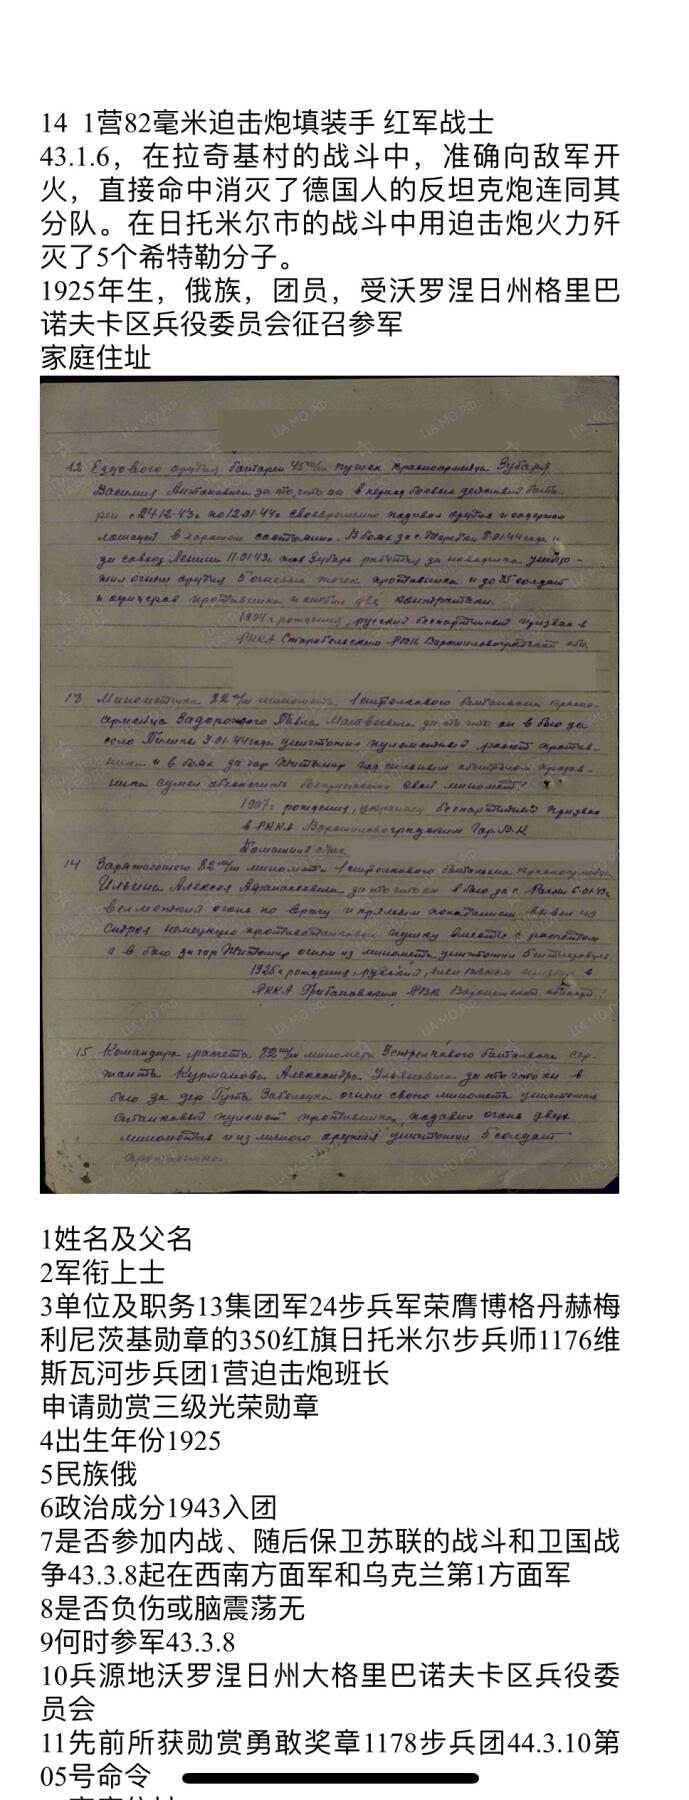 14 1营82毫米迫击炮填装手 红军战士
43.1.6，在拉奇基村的战斗中，准确向敌军开
火，直接命中消灭了德国人的反坦克炮连同其
分队。在日托米尔市的战斗中用迫击炮火力歼
灭了5个希特勒分子。
1925年生，俄族，团员，受沃罗涅日州格里巴
诺夫卡区兵役委员会征召参军
家庭住址
12 Ездового орудия батареи 45 м/м пушек красноармейца Зубаря
Василия Антоновича за то, что он в период боевых действий
с 24.12.43г по 12.01.44г своевременно подавал орудия и содержал
лошадей в хорошем состоянии. В боях за с. 8.01.44 года и
за совхоз Ленина Зубарь работая за наводчика уничто-
жил огнем орудия 5 огневых точек противника и до 35 солдат
и офицеров противника и отбил две контратаки.
1904 г рождения, русский беспартийный призван в
РККА Старобельским РВК Ворошиловградской обл.
13 Минометчика 82 м/м миномета 1 стрелкового батальона красно-
армейца Задорожного Павла Матвеевича за то что он в бою за
село 3.01.44 года уничтожил пулеметный расчет против-
ника и в боях за гор Житомир под сильным обстрелом против-
ника сумел обеспечить боеприпасами свой миномет.
1907 г рождения, украинец беспартийный призван
в РККА Ворошиловградским Гор.В.К.
14 Заряжающего 82 м/м миномета 1 стрелкового батальона красноармейца
Ильина Алексея Афанасьевича за то что он в бою за с. 6.01.43г.
вел меткий огонь по врагу и прямым попаданием вывел из
строя немецкую противотанковую пушку вместе с расчетом
а в бою за гор Житомир огнем из миномета уничтожил 5 гитлеровцев.
1925 г рождения, русский, член ВЛКСМ призван в
РККА Грибановским РВК Воронежской области
15 Командира расчета 82 м/м миномета 3 стрелкового батальона сер-
жанта Курманова Александра Ульяновича за то что он в
бою за дер Гута Заболоцка огнем своего миномета уничтожил
станковый пулемет противника, подавил огонь двух
минометов и из личного оружия уничтожил 5 солдат
противника.
1姓名及父名
2军衔上士
3单位及职务13集团军24步兵军荣膺博格丹赫梅
利尼茨基勋章的350红旗日托米尔步兵师1176维
斯瓦河步兵团1营迫击炮班长
申请勋赏三级光荣勋章
4出生年份1925
5民族俄
6政治成分1943入团
7是否参加内战、随后保卫苏联的战斗和卫国战
争43.3.8起在西南方面军和乌克兰第1方面军
8是否负伤或脑震荡无
9何时参军43.3.8
10兵源地沃罗涅日州大格里巴诺夫卡区兵役委
员会
11先前所获勋赏勇敢奖章1178步兵团44.3.10第
05号命令